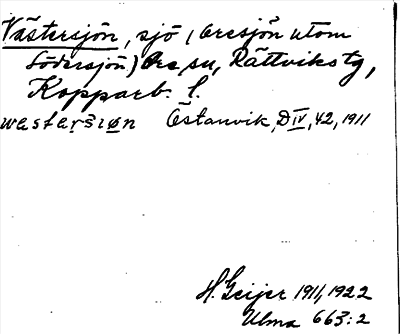 Västersjön, sjö (Oresjön utom
Södersjön) Ore sn, Rättviks tg,
Kopparb. l.
västersıøn Östanvik, D IV, 42, 1911
H. Geijer 1911, 1922
Ulma 663:2